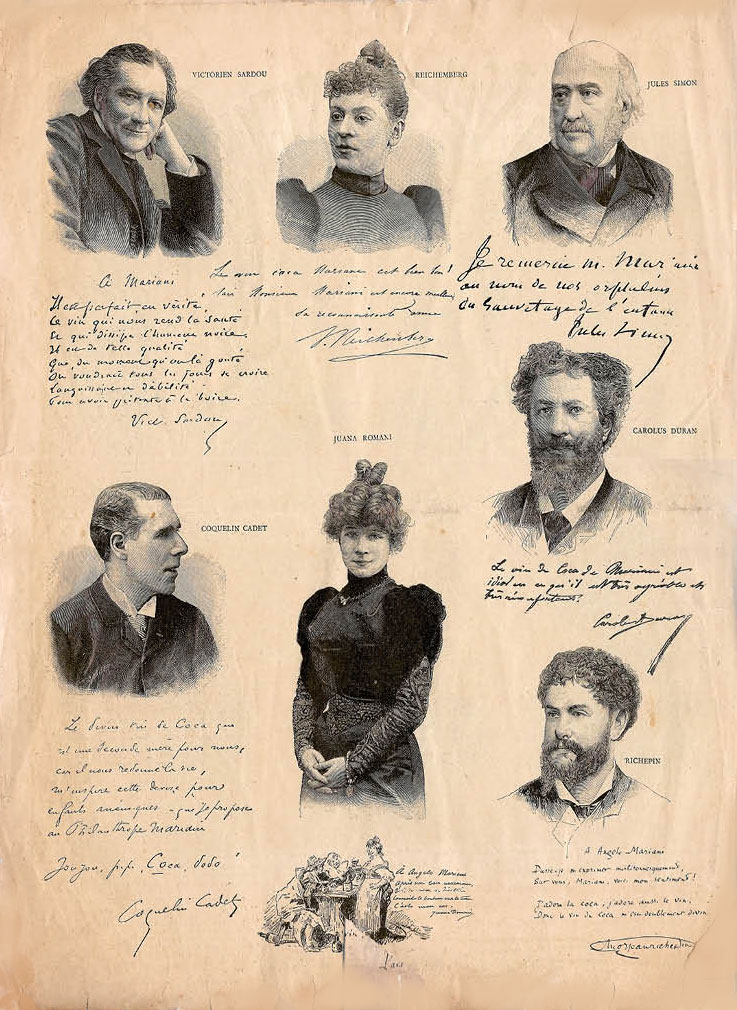 VICTORIEN SARDOU
REICHEMBERG
JULES SIMON
A Mariani
Il est parfait, en vérité,
Ce vin qui nous rend la santé
Et qui dissipe l'humeur noire.
Il est de telle qualité
Que, du moment qu'on l'a goûté
On voudrait tous les jours se croire
Languissant en débilité
Pour avoir prétexte à le boire.
Vict. Sardou
Le vin coca Mariani est bien bon!
Monsieur Mariani est encore meilleur
la reconnaissante
S. Reichemberg
Je remercie M. Mariani
au nom de nos orphelins
du Sauvetage de l'enfance
Jules Simon
CAROLUS DURAN
Le vin de Coca de Mariani est
idéal en ce qu'il est très agréable et
très réconfortant.
Carolus Duran
JUANA ROMANI
COQUELIN CADET
Le divin vin de Coca qui
est une seconde mère pour nous,
car il nous redonne la vie,
m'inspire cette devise pour
enfants anémiques que je propose
au Philanthrope Mariani
Joujou, pipi, Coca, dodo!
Coquelin Cadet
A Angelo Mariani
RICHEPIN
A Angelo Mariani
Puis-je m'exprimer
Sur vous, Mariani, voici mon sentiment!
J'adore la coca, j'adore aussi le vin;
Donc le vin de Coca m'est doublement divin
Jean Richepin